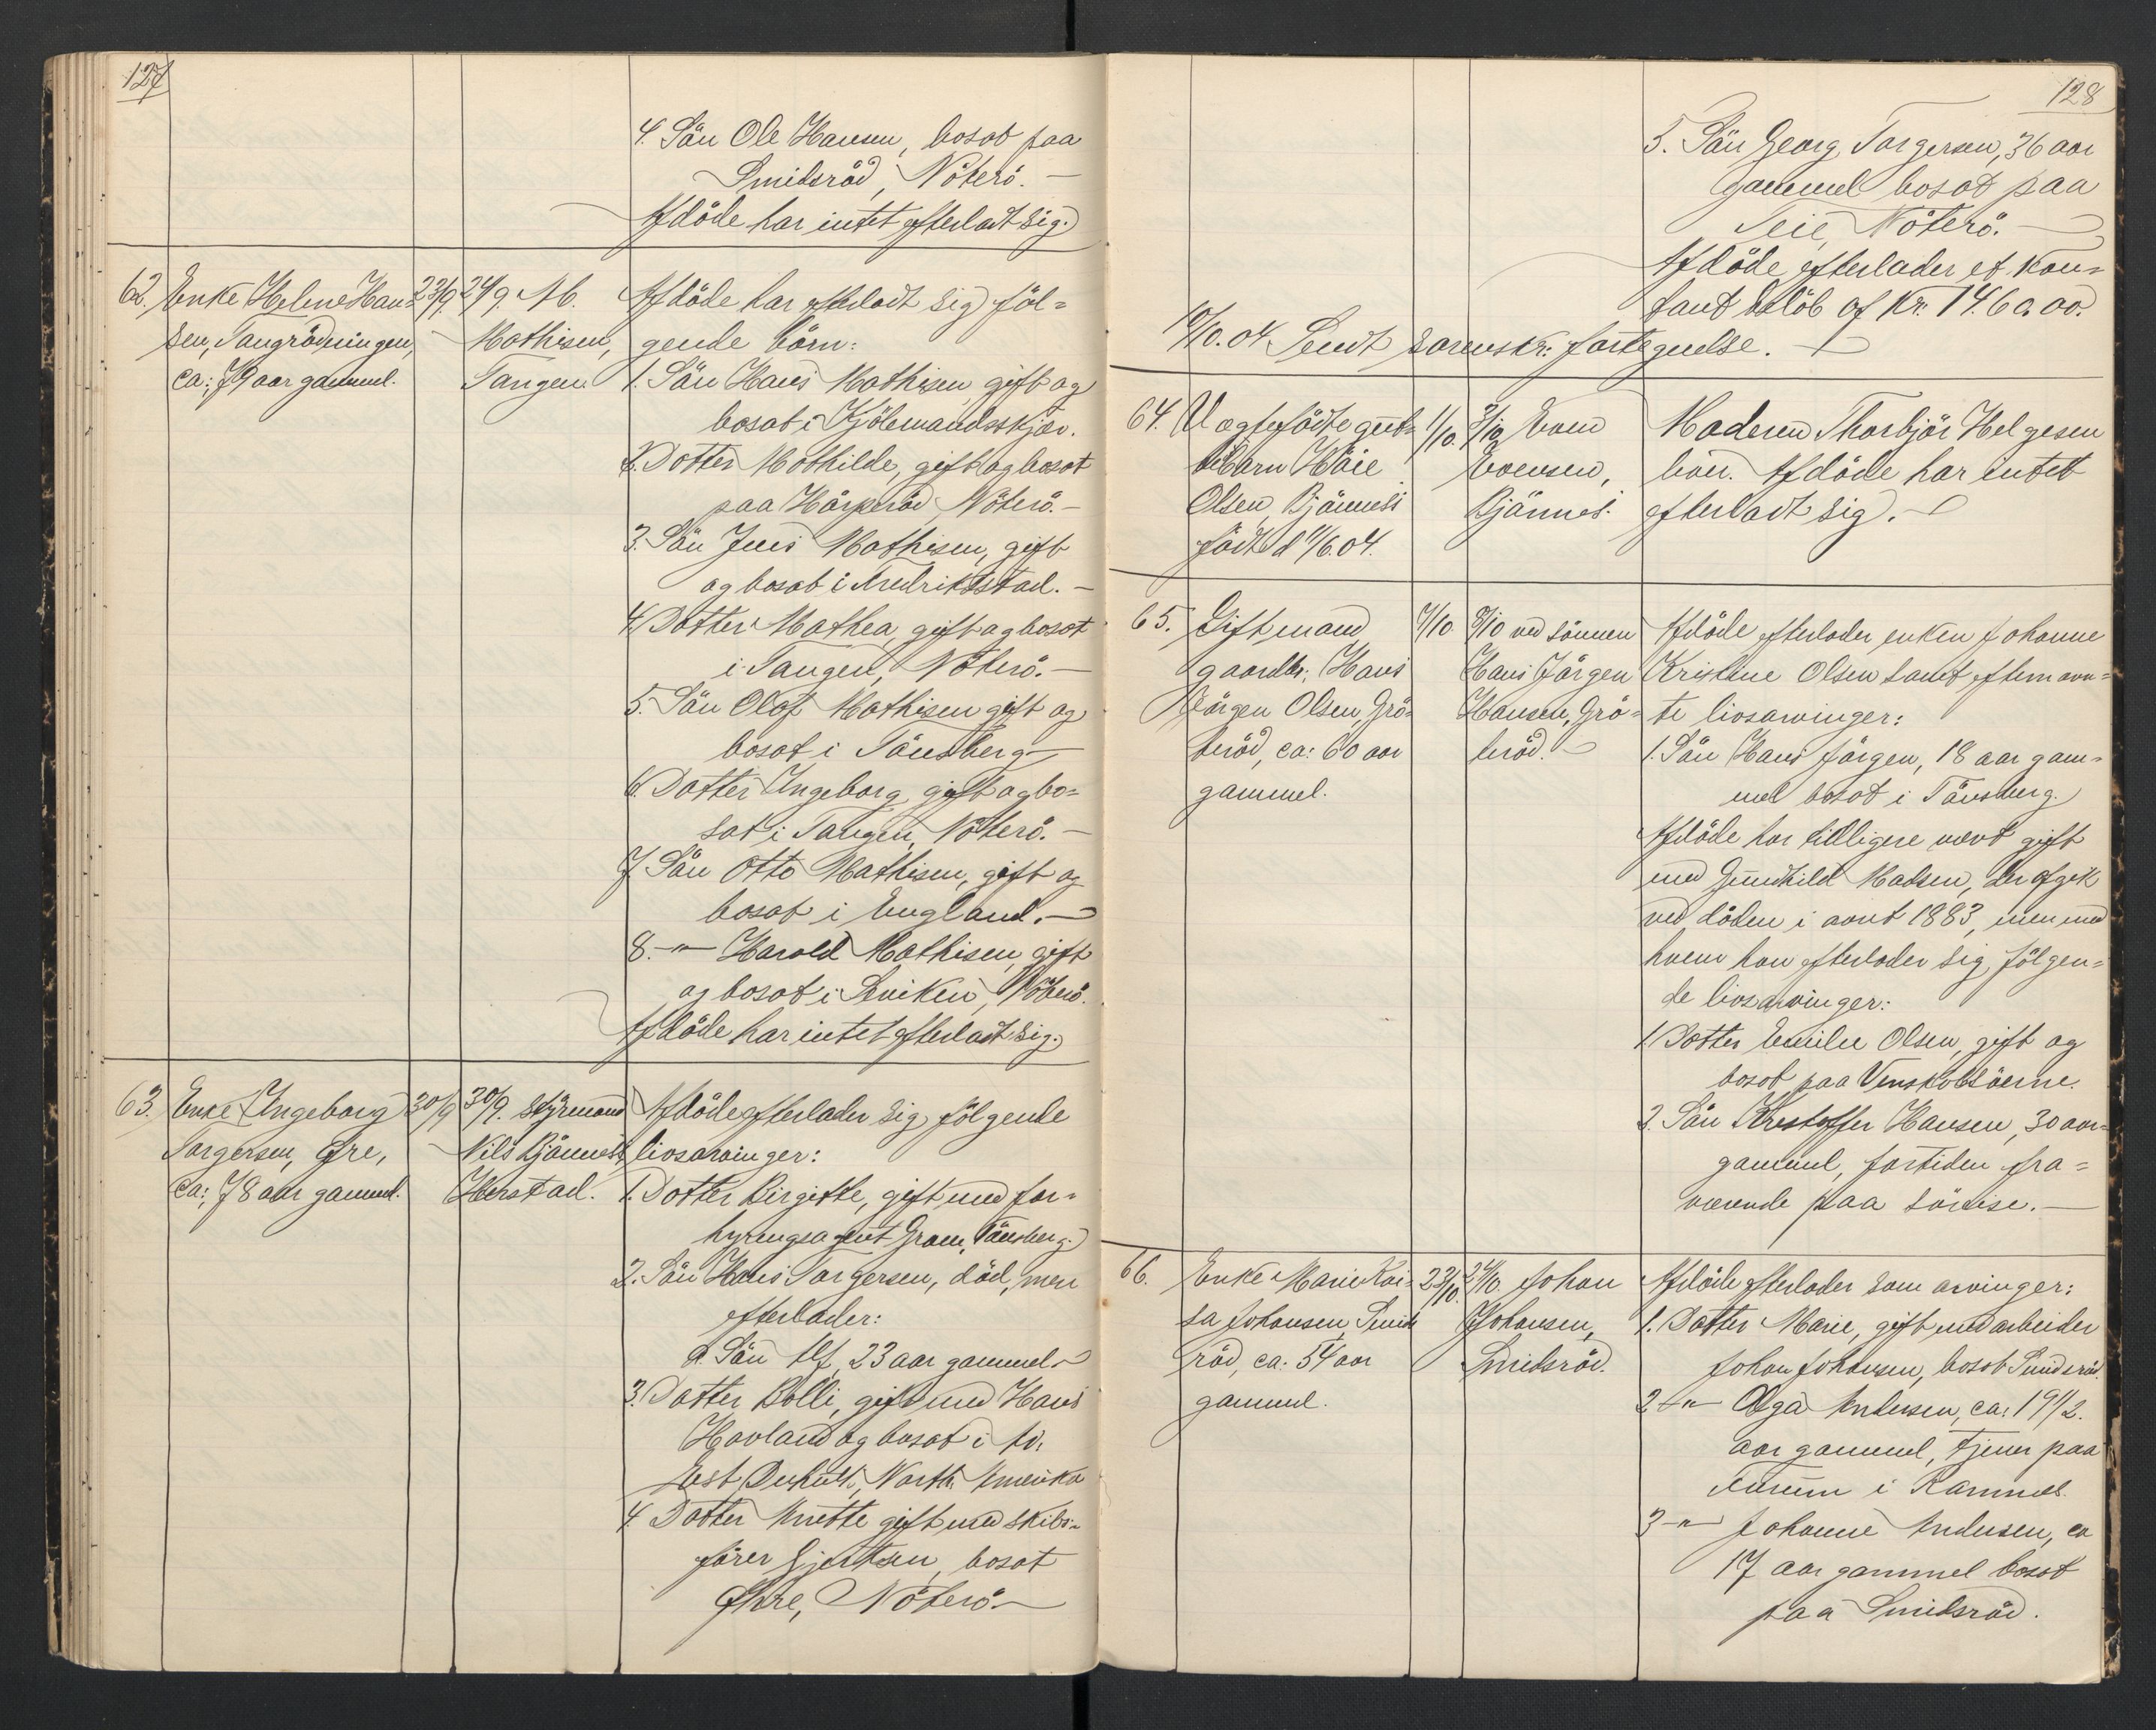 127
4. Sön Ole Hansen, bosat paa
Smidsröd, Nöterö. —
Afdöde har intet efterladt sig.
62. Enke Helene Han=
sen, Tangrödningen,
ca: 79 aar gammel.
23/9.
24/9. M.
Mathisen,
Tangen.
Afdöde har efterladt sig föl=
gende börn:
1. Sön Hans Mathisen, gift og
bosat i Kjöbmandsskjær.
2. Datter Mathilde, gift og bosat
paa Hårperöd, Nöterö. —
3. Sön Jens Mathisen, gift
og bosat i Fredriksstad. —
4. Datter Mathea, gift og bosat
i Tangen, Nöterö. —
5. Sön Olaf Mathisen gift og
bosat i Tönsberg
6. Datter Ingeborg, gift og bo=
sat i Tangen, Nöterö. —
7. Sön Otto Mathisen, gift og
bosat i England. —
8. —"— Harald Mathisen, gift
og bosat i Sviken, Nöterö.
Afdöde har intet efterladt sig.
63. Enke Ingeborg
Torgersen, Øre,
ca: 78 aar gammel.
30/9
30/9. Styrmand
Nils Bjönness,
Herstad.
Afdöde efterlader sig følgende
livsarvinger:
1. Datter Birgitte, gift med for=
hyringsagent Gram, Tönsberg.
2. Sön Hans Torgersen, död, men
efterlader:
a. Sön Alf, 23 aar gammel
3. Datter Bolli, gift med Hans
Havland og bosat i
West Duluth, North Amerika
4. Datter Anette gift med skibs=
förer Gjertsen, bosat
Øhre, Nöterö. —
128
5. Sön Georg Torgersen, 36 aar
gammel bosat paa
Teie, Nöterö. —
Afdöde efterlader et kon=
tant belöb af Kr. 1460.00.
10/10.04. Sendt sorenskr: fortegnelse. —
64. Uægtefödte gut=
tebarn Håie
Olsen, Bjönnes
födt d 11/6.04.
1/10.
3/10 Even
Evensen,
Bjönnes.
Moderen Thorbjör Helgesen
lever. Afdöde har intet
efterladt sig. —
65. Gift mand
gaardbr. Hans
Jörgen Olsen, Grö=
teröd, ca: 60 aar
gammel.
7/10.
8/10 ved sönnen
Hans Jörgen
Hansen, Grö=
teröd. —
Afdöde efterlader enken Johanne
Kristine Olsen samt efternævn=
te livsarvinger:
1. Sön Hans Jörgen, 18 aar gam=
mel bosat i Tönsberg.
Afdöde har tidligere været gift
med Gundhild Madsen, der afgik
ved döden i aaret 1883, men med
hvem han efterlader sig fölgen=
de livsarvinger:
1. Datter Emilie Olsen, gift og
bosat paa Vaskobköerne.
2. Sön Kristoffer Hansen, 30 aar
gammel, fortiden fra=
værende paa söreise. —
66. Enke Marie Kai=
sa Johansen, Smids
röd, ca: 54 aar
gammel.
23/10.
24/10. Johan
Johansen,
Smidsröd.
Afdöde efterlader som arvinger:
1. Datter Marie, gift med arbeider
Johan Johansen, bosat Smidsröd.
2 —"— Olga Andersen, ca: 19 1/2
aar gammel, tjener paa
i Ramnes.
3 —"— Johanne Andersen, ca
17 aar gammel bosat
paa Smidsröd.